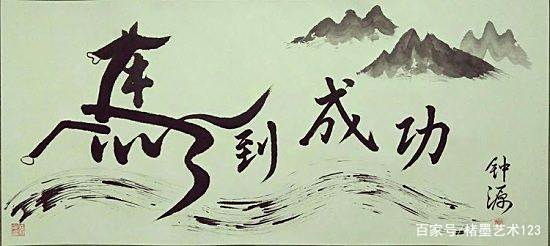 馬到成功
钟源
百家号/楮墨艺术123